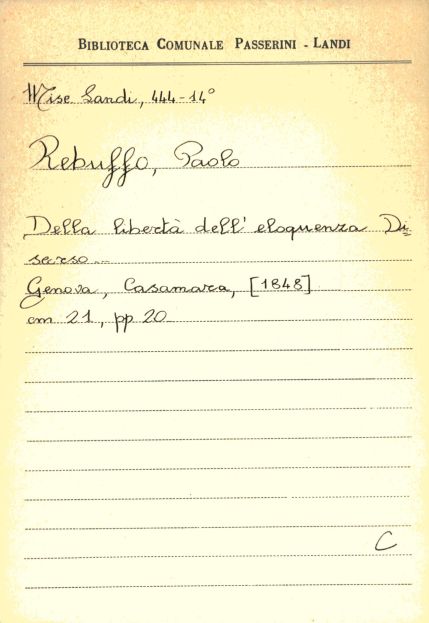 BIBLIOTECA COMUNALE PASSERINI - LANDI
Misc Landi, 444-14°
Rebuffo, Paolo
Della libertà dell' eloquenza Di=
scorso...
Genova, Casamara, [1848]
cm 21, pp 20
C